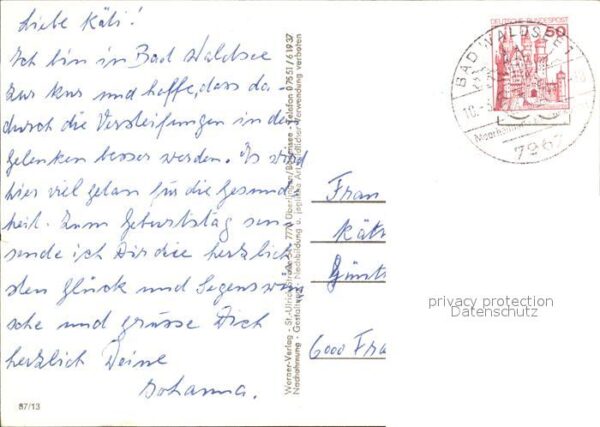 Liebe Käti!
Ich bin in Bad Waldsee
zur Kur und hoffe, dass da-
durch die Versteifungen in den
Gelenken besser werden. Es wird
hier viel getan für die Gesund
heit. Zum Geburtstag
sende ich Dir die herzlich
sten Glück und Segenswün
sche und grüsse Dich
herzlich Deine
Johanna.
87/13
Werner-Verlag - St.-Ulrich-Straße 7770 Überlingen/Bodensee - Telefon 07551/61937
Nachahmung - Nachbildung u. jegliche Art verboten
DEUTSCHE BUNDESPOST
50
BAD WALDSEE 1
10.
7967
Frau
Kät
Günt
6000 Fra
privacy protection
Datenschutz